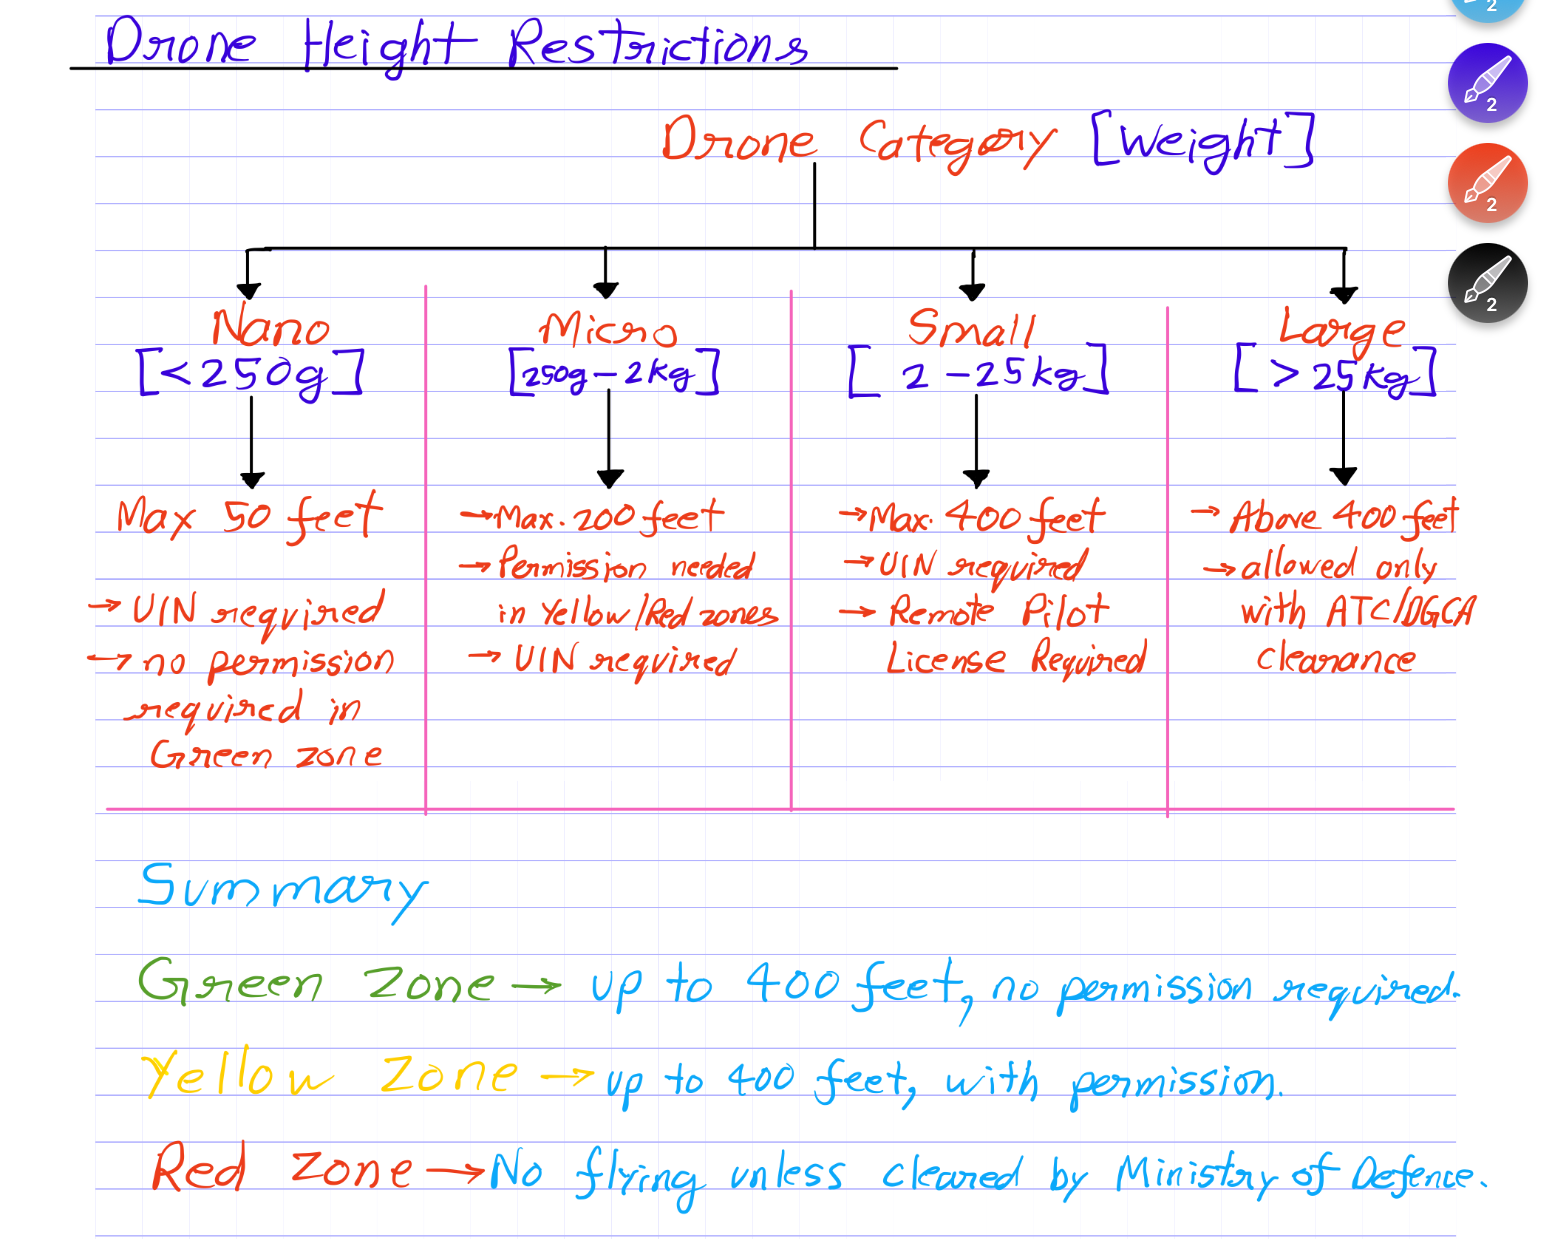 Drone Height Restrictions
Drone Category [Weight]
Nano
[<250g]
Max 50 feet
→ UIN required
→ no permission
required in
Green zone
Micro
[250g - 2kg]
→ Max. 200 feet
→ Permission needed
in Yellow/Red zones
→ UIN required
Small
[2 - 25kg]
→ Max. 400 feet
→ UIN required
→ Remote Pilot
License Required
Large
[> 25kg]
→ Above 400 feet
→ allowed only
with ATC/DGCA
clearance
Summary
Green Zone → up to 400 feet, no permission required.
Yellow Zone → up to 400 feet, with permission.
Red Zone → No flying unless cleared by Ministry of Defence.
2
2
2
2